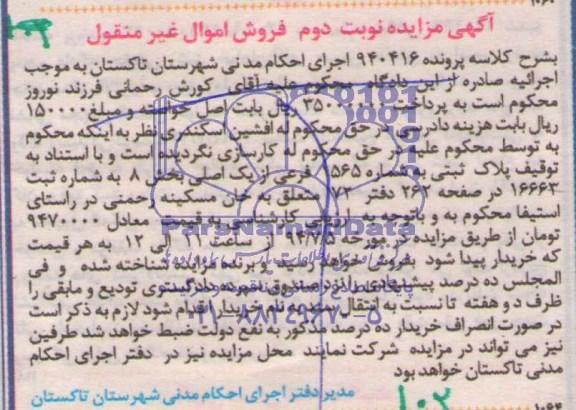 ۱۰۶۰
آگهی مزایده نوبت دوم فروش اموال غیر منقول
بشرح کلاسه پرونده ۹۴۰۴۱۶ اجرای احکام مدنی شهرستان تاکستان به موجب
اجرائیه صادره از این دادگاه محکوم علیه آقای کورش رحمانی فرزند نوروز
محکوم است به پرداخت ریال بابت اصل خواسته و مبلغ ۱۵۰۰۰۰
ریال بابت هزینه دادرسی در حق محکوم له افشین اسکندری نظر به اینکه محکوم
به توسط محکوم علیه در حق محکوم له کارسازی نگردیده است و با استناد به
توقیف پلاک ثبتی به شماره ۵۶۵ فرعی از یک اصلی بخش ۸ به شماره ثبت
۱۶۶۶۳ در صفحه ۲۶۲ دفتر ۷۲ متعلق به خان مسکینه رحمنی در راستای
استیفا محکوم به و باتوجه به ارزیابی کارشناسی به قیمت معادل ۹۴۷۰۰۰۰
تومان از طریق مزایده در مورخه ۹۴/۷/۵ از ساعت ۱۱ الی ۱۲ به هر قیمت
که خریدار پیدا شود بفروش خواهد رسید و برنده مزایده شناخته شده و فی
المجلس ده درصد پیشنهادی را نزد صندوق سپرده دادگستری تودیع و مابقی را
ظرف دو هفته تا نسبت به انتقال سند به نام خریدار اقدام شود لازم به ذکر است
در صورت انصراف خریدار ده درصد مذکور به نفع دولت ضبط خواهد شد طرفین
نیز می تواند در مزایده شرکت نمایند محل مزایده نیز در دفتر اجرای احکام
مدنی تاکستان خواهد بود
مدیر دفتر اجرای احکام مدنی شهرستان تاکستان
ParsNamadData
۰۲۱-۸۸۳۴۹۶۷۰-۵
۱۰۲
۱۰۶۴